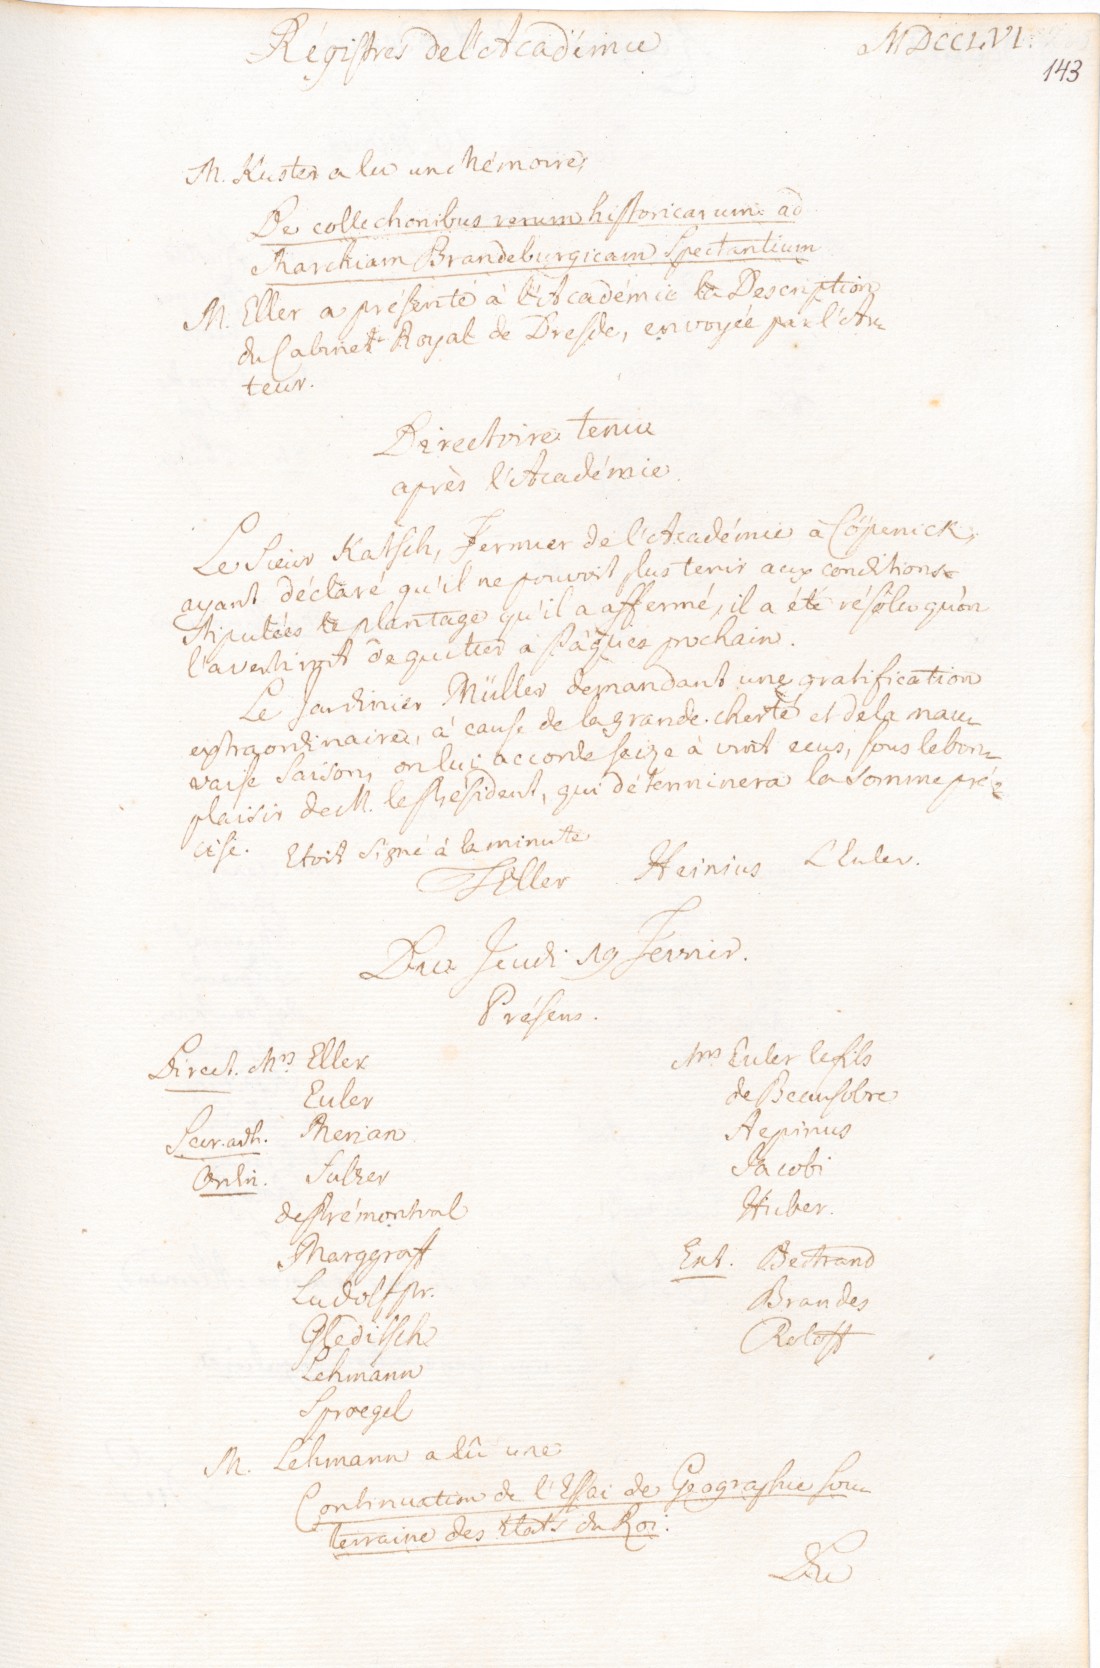 Régistres de l'Académie MDCCLVI.
143
M. Kuster a lu un Mémoire,
De collectionibus rerum historicarum ad
Marchiam Brandeburgicam Spectantium
M. Eller a présenté à l'Académie la Description
du Cabinet Royal de Dresde, envoyée par l'Au-
teur.
Directoire tenu
après l'Académie.
Le Sieur Katsch, Fermier de l'Académie à Cöpenick,
ayant déclaré qu'il ne pouvoit plus tenir aux conditions
stipulées le plantage qu'il a affermé, il a été résolu qu'on
l'avertiroit de quitter à Pâques prochain.
Le Jardinier Müller demandant une gratification
extraordinaire, à cause de la grande cherté et de la mau-
vaise saison, on lui accorde seize à vint ecus, sous le bon
plaisir de M. le Président, qui déterminera la somme pré-
cise. Etoit signé à la minute
Eller Heinius L Euler.
Du Jeudi 19 Fevrier.
Présens.
Direct. Mrs Eller
Euler
Secr. adh. Merian
Ordin. Sulzer
de Prémontval
Marggraff
Ludolf pr.
Gleditsch
Lehmann
Sproegel
Mrs Euler le fils
de Beausobre
Aepinus
Jacobi
Huber.
Ext. Bertrand
Brandes
Roloff
M. Lehmann a lû une
Continuation de l'Essai de Géographie sou-
terraine des Etats du Roi.
Du